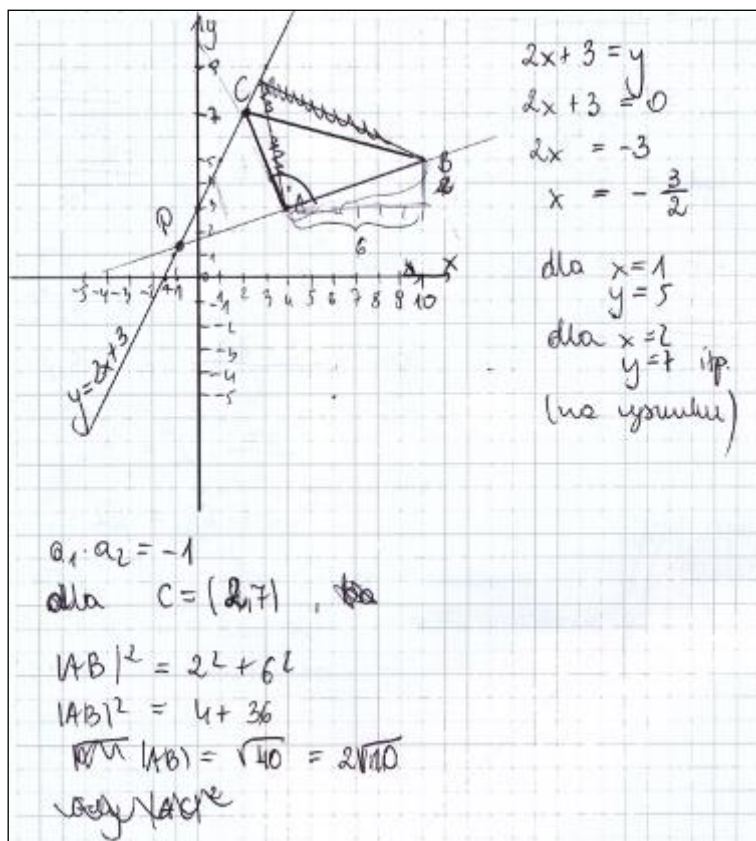 y
9
7
5
3
2
1
C
B
A
P
6
x
-5 -4 -3 -2 -1 1 2 3 4 5 6 7 8 9 10
-1
-2
-3
-4
-5
y=2x+3
2x+3 = y
2x+3 = 0
2x = -3
x = - 3/2
dla x=1
y=5
dla x=2
y=7 itp.
(na rysunku)
a₁·a₂ = -1
dla C = (2,7) ,
|AB|² = 2² + 6²
|AB|² = 4 + 36
|AB| = √40 = 2√10